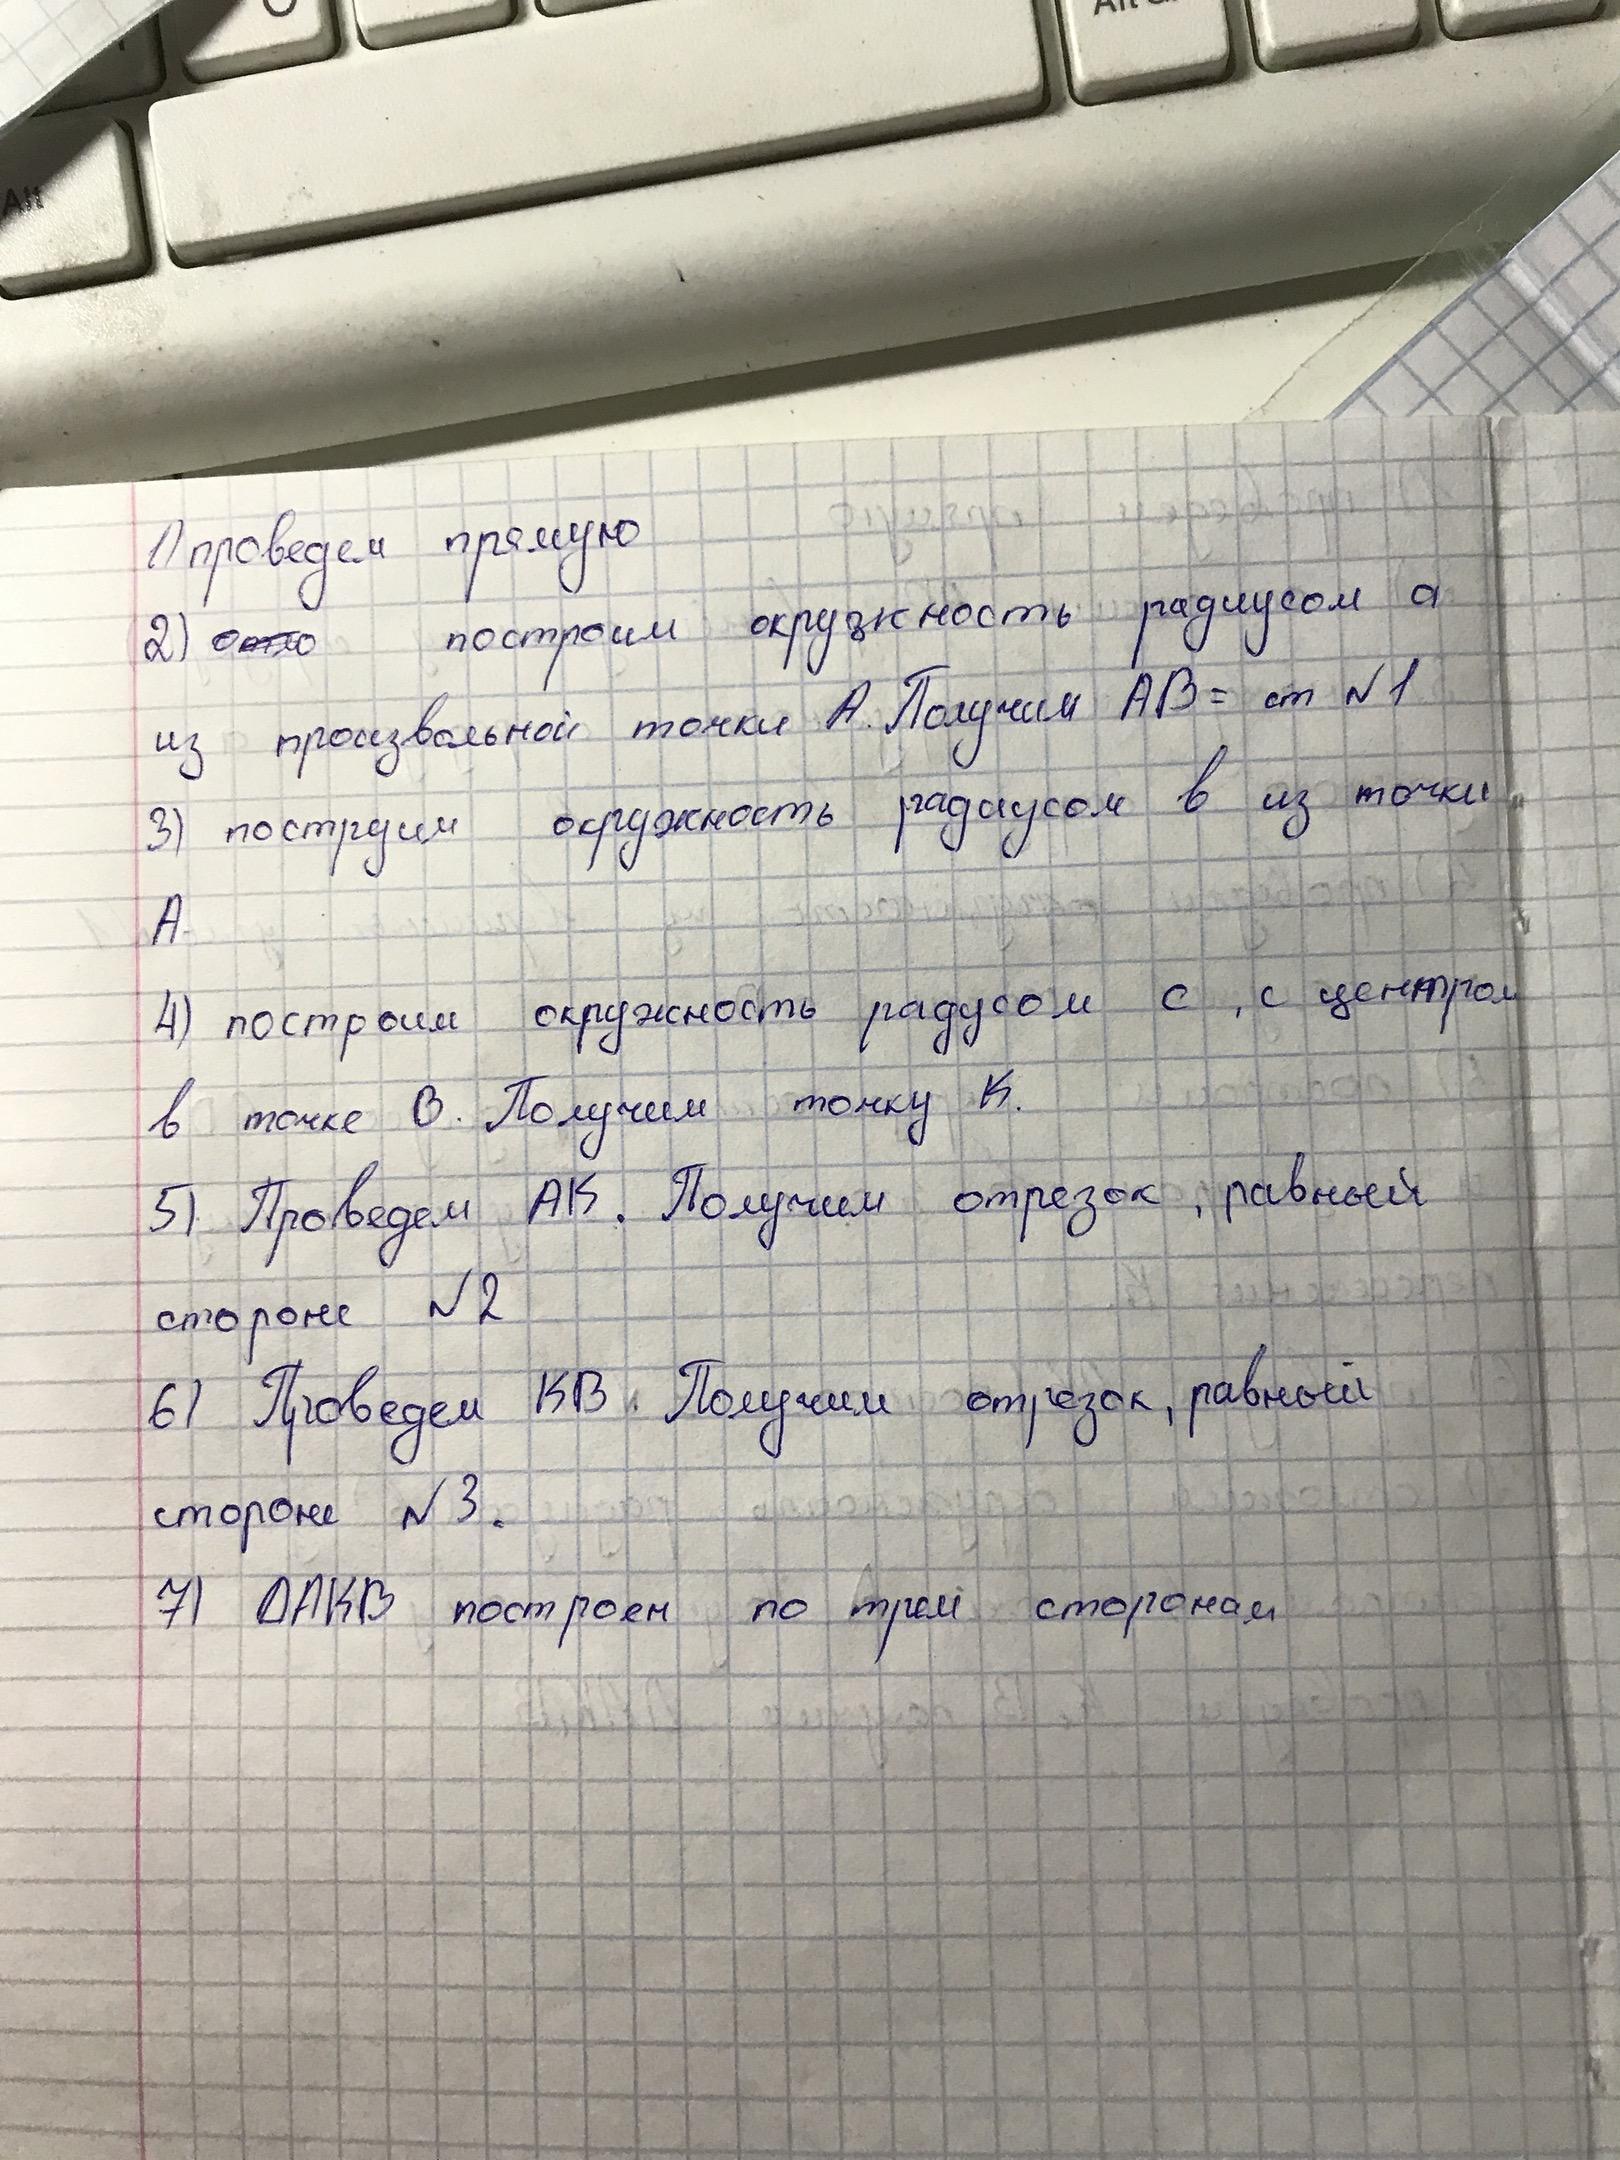 Alt Gr
Alt
1) проведем прямую
2) построим окружность радиусом а
из произвольной точки А. Получим АВ = ст №1
3) построим окружность радиусом в из точки
А.
4) построим окружность радусом с, с центром
в точке В. Получим точку К.
5) Проведем АК. Получим отрезок, равный
стороне №2
6) Проведем КВ. Получим отрезок, равный
стороне №3.
7) ΔАКВ построен по трем сторонам